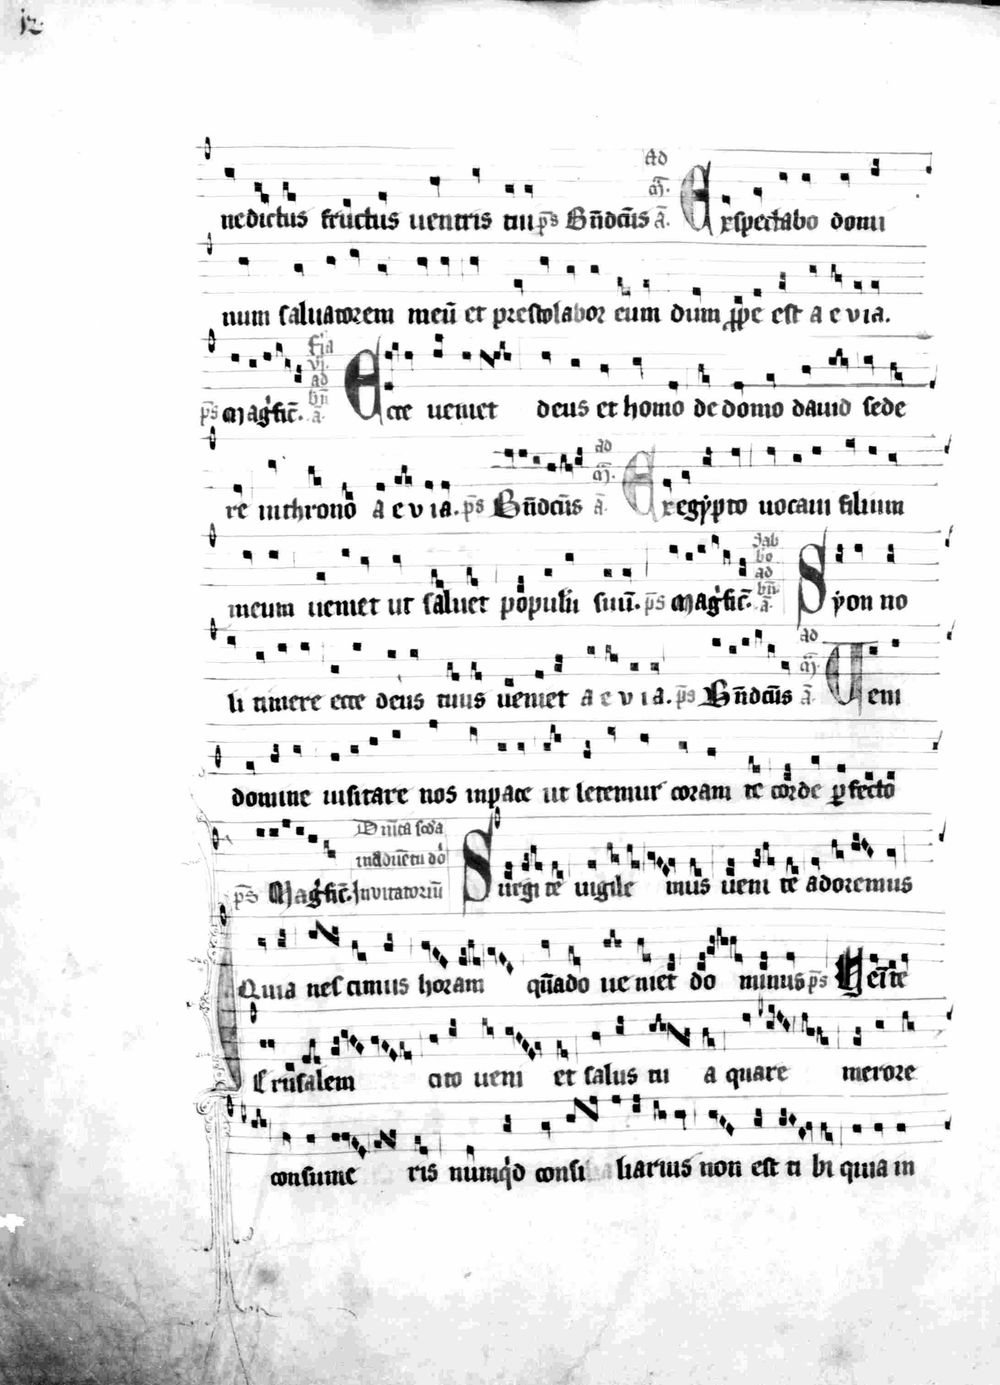 12.
nedictus fructus uentris tui p̄s Bn̄dcūs ad m̄. ā. Exspectabo domi
num saluatorem meū et prestolabor eum dum ꝓpe est a e v ia.
p̄s Magͥfic̄. fia vj. ad bn̄ ā. Ecce ueniet deus et homo de domo dauid sede
re inthrono a e v ia. p̄s Bn̄dcūs ad m̄. ā Exegypto uocaui filium
meum ueniet ut saluet populū suū. p̄s Magͥfic̄. Sab bo ad bn̄. ā. Syon no
li timere ecce deus tuus ueniet a e v ia. p̄s Bn̄dcūs ad m̄. ā Ueni
domine uisitare nos inpace ut letemur coram te corde ꝑfecto
p̄s Magͥfic̄. Dn̄ica scd̄a inaduētu dō Inuitatoriū Surgite uigile mus ueni te adoremus
Quia nescimus horam qn̄ado ue niet do minus p̄s Ueīte
Ierusalem cito ueni et salus tu a quare merore
consume ris numqͥd consi liarius non est ti bi quia in